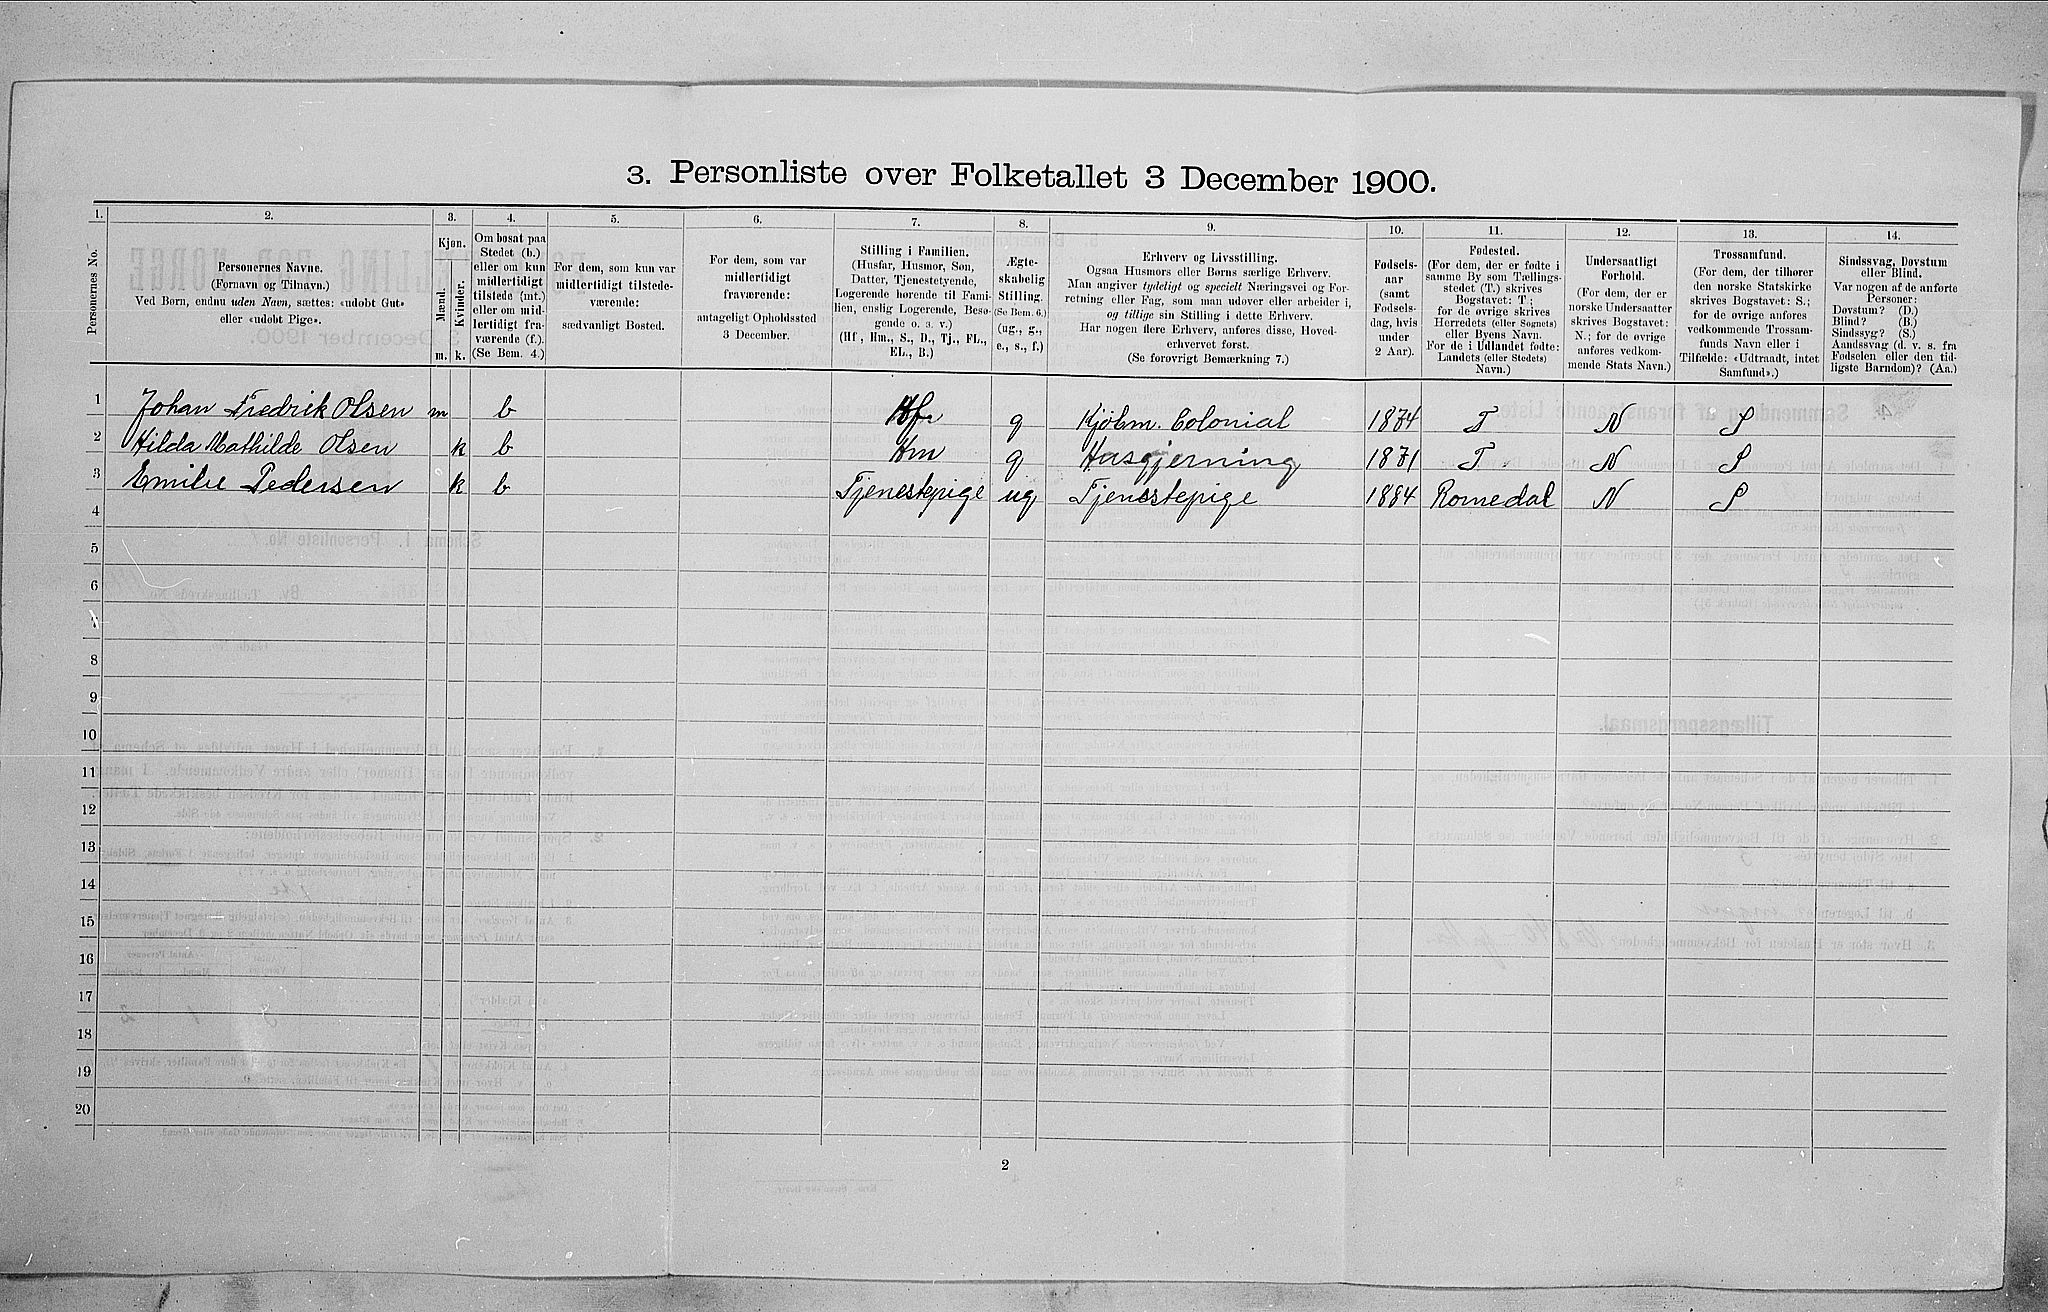 3. Personliste over Folketallet 3 December 1900.
1. 2. 3. 4. 5. 6. 7. 8. 9. 10. 11. 12. 13. 14.
Personernes No.
Personernes Navne.
(Fornavn og Tilnavn.)
Ved Børn, endnu uden Navn, sættes: «udøbt Gut»
eller «udøbt Pige».
Kjøn.
Mænd. Kvinder.
m. k.
Om bosat paa
Stedet (b.)
eller om kun
midlertidigt
tilstede (mt.)
eller om mid-
lertidigt fra-
værende (f.).
(Se Bem. 4.)
For dem, som kun var
midlertidigt tilstede-
værende:
sædvanligt Bosted.
For dem, som var
midlertidigt
fraværende:
antageligt Opholdssted
3 December.
Stilling i Familien.
(Husfar, Husmor, Søn,
Datter, Tjenestetyende,
Logerende hørende til Fami-
lien, enslig Logerende, Besø-
gende o. s. v.)
(Hf., Hm., S., D., Tj., FL.,
EL., B.)
Ægte-
skabelig
Stilling.
(Se Bem. 6.)
(ug., g.,
e., s., f.)
Erhverv og Livsstilling.
Ogsaa Husmors eller Børns særlige Erhverv.
Man angiver tydeligt og specielt Næringsvei og For-
retning eller Fag, som man udøver eller arbeider i,
og tillige sin Stilling i dette Erhverv.
Har nogen flere Erhverv, anføres disse, Hoved-
erhvervet først.
(Se forøvrigt Bemærkning 7.)
Fødsels-
aar
(samt
Fødsels-
dag, hvis
under
2 Aar).
Fødested.
(For dem, der er fødte i
samme By som Tællings-
stedet (T.) skrives
Bogstavet: T;
for de øvrige skrives
Herredets (eller Sognets)
eller Byens Navn.
For de i Udlandet fødte:
Landets (eller Stedets)
Navn.)
Undersaatligt
Forhold.
(For dem, der er
norske Undersaatter
skrives Bogstavet:
N.; for de øvrige
anføres vedkom-
mende Stats Navn.)
Trossamfund.
(For dem, der tilhører
den norske Statskirke
skrives Bogstavet: S.;
for de øvrige anføres
vedkommende Trossam-
funds Navn eller i
Tilfælde: «Udtraadt, intet
Samfund».)
Sindssvag, Døvstum
eller Blind.
Var nogen af de anførte
Personer:
Døvstum? (D.)
Blind? (B.)
Sindssyg? (S.)
Aandssvag (d. v. s. fra
Fødselen eller den tid-
ligste Barndom)? (Aa.)
1 Johan Fredrik Olsen m b Hf g Kjøbm. Colonial 1874 T N S
2 Hilda Mathilde Olsen k b Hm g Husgjerning 1871 T N S
3 Emilie Pedersen k b Tjenestepige ug Tjenestepige 1884 Romedal N S
4
5
6
7
8
9
10
11
12
13
14
15
16
17
18
19
20
2